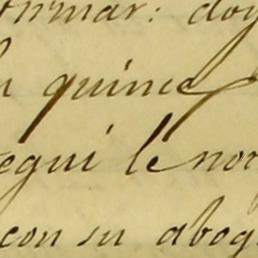 firmar: doy
quince
egui le no
con su abog